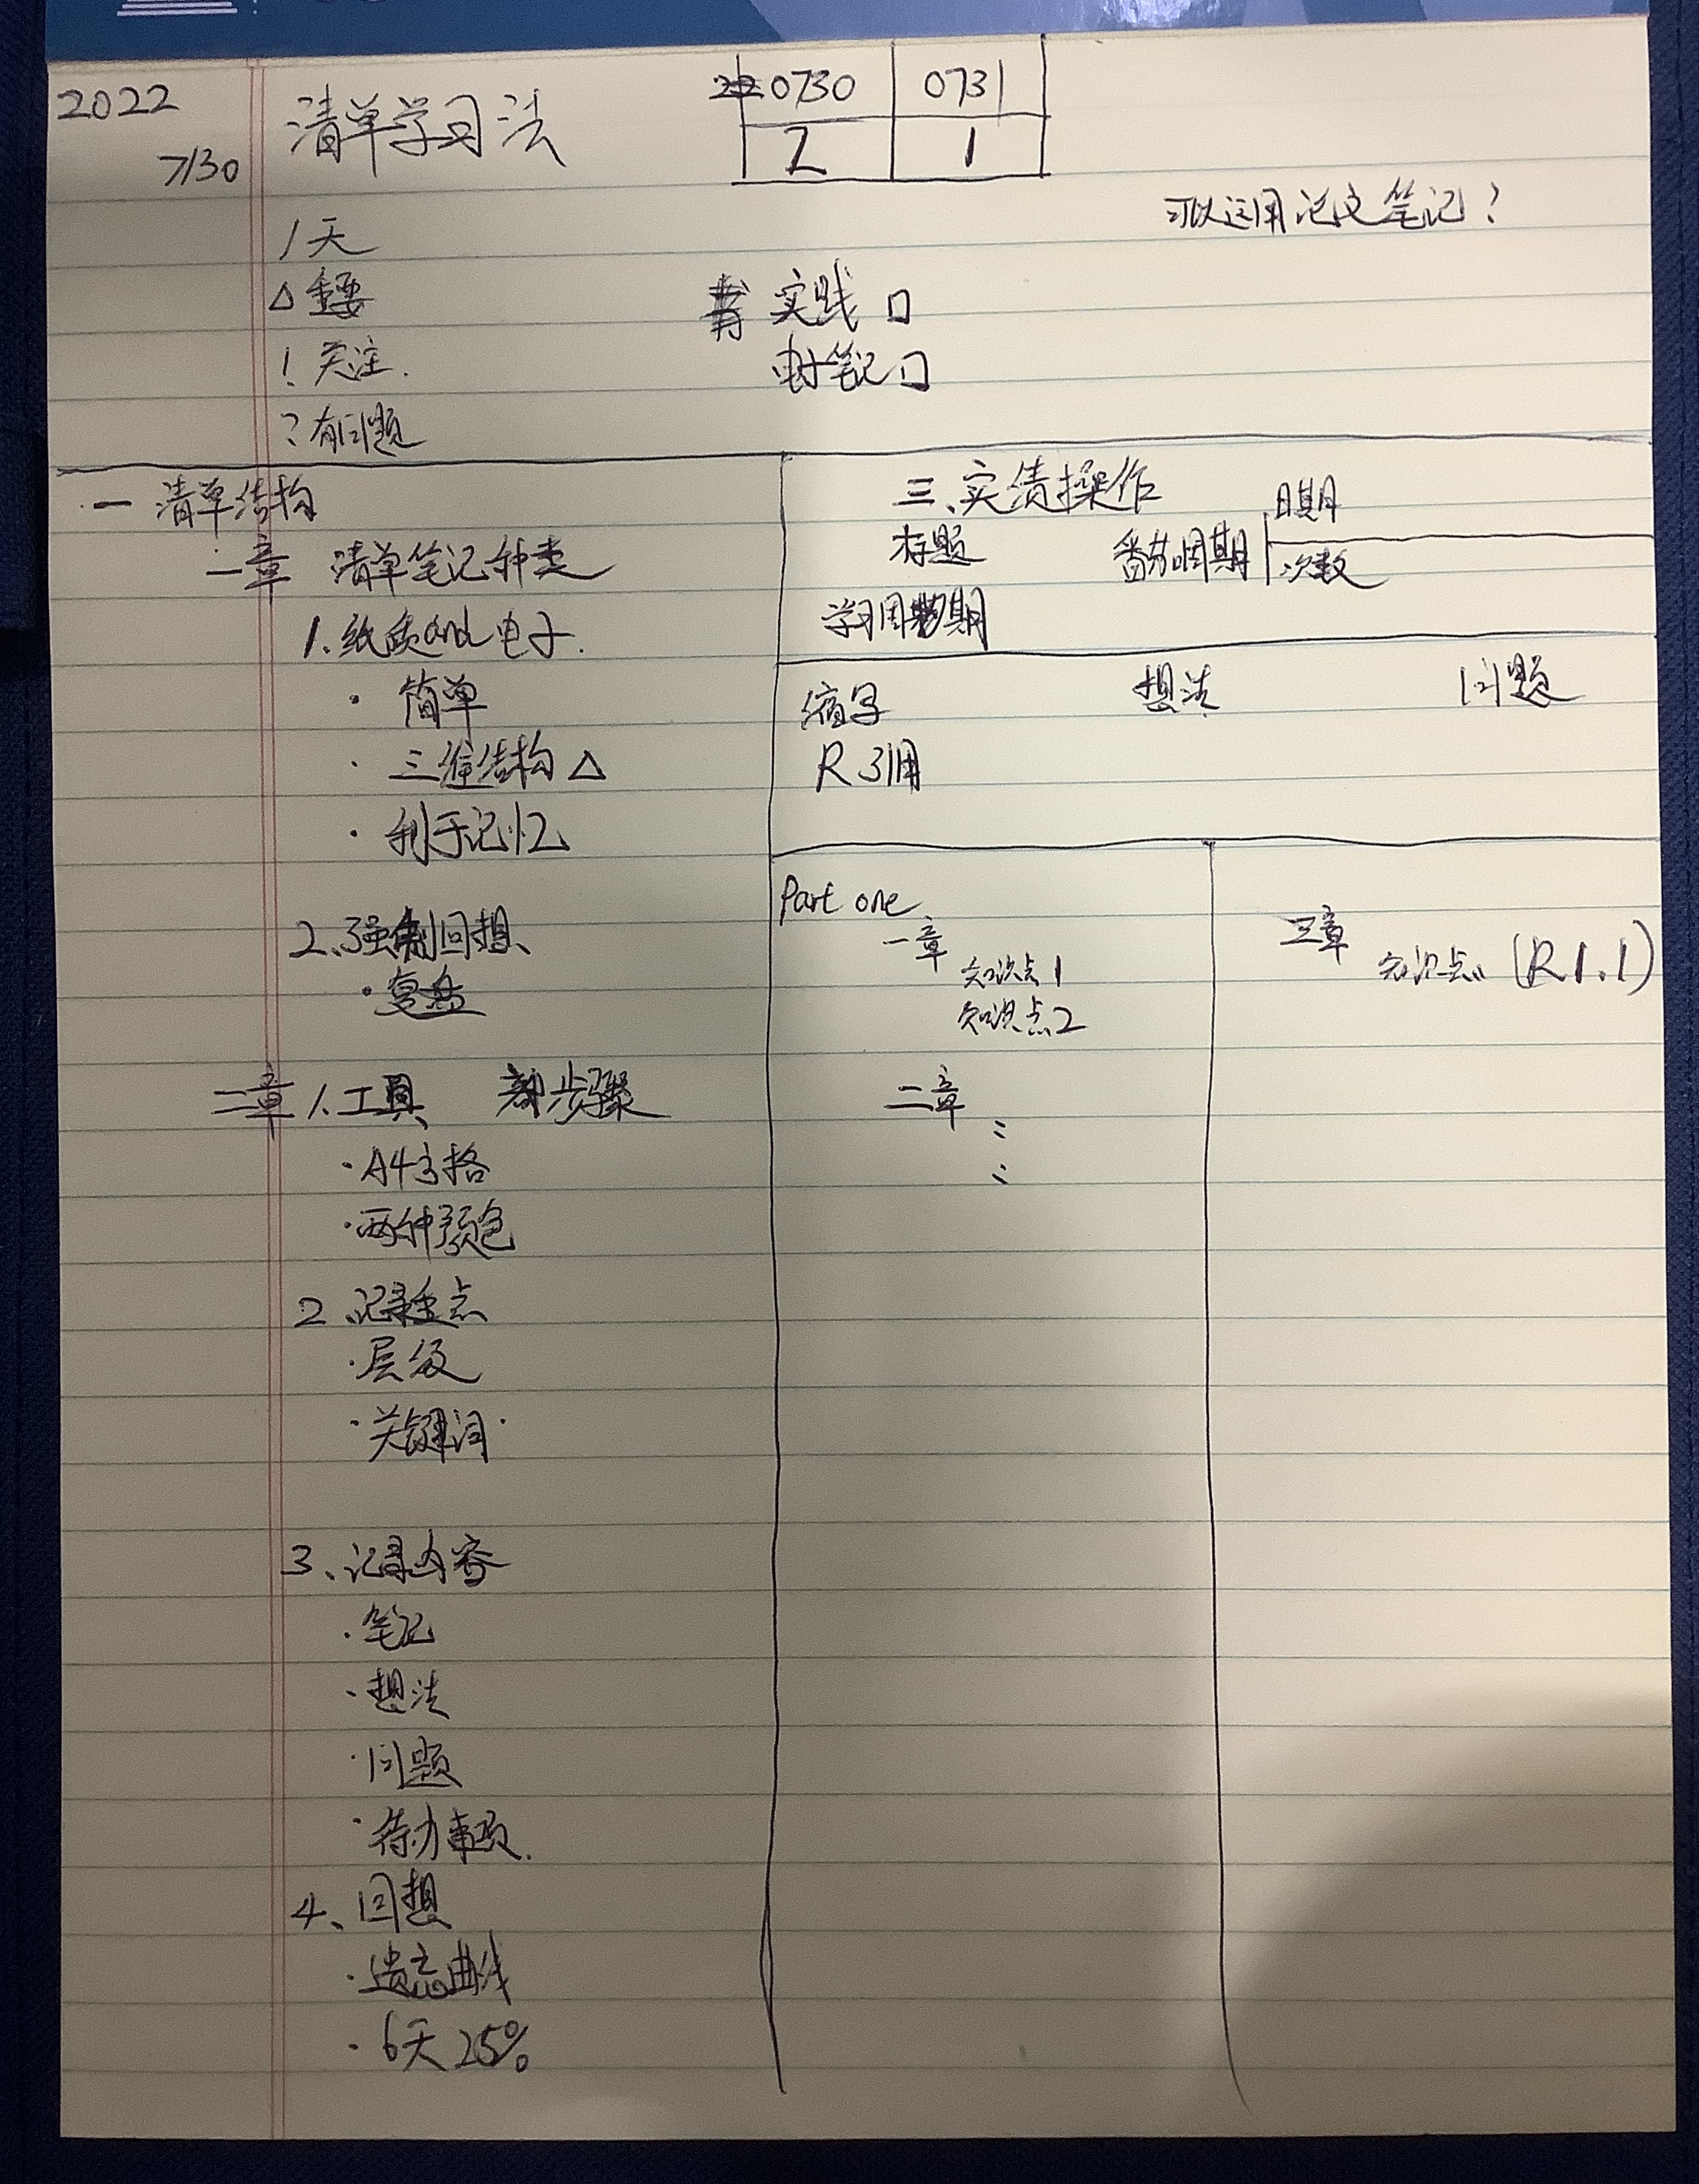 2022
7/30
清单学习法
0730 0731
2 1
可以运用论文笔记?
1天
△ 重要
! 关注.
? 有问题
实践 口
电子笔记 口
一 清单结构
一章 清单笔记种类
1. 纸质and电子.
· 简单
· 三维结构 △
· 利于记忆
2、强制回想、
· 复盘
二章 1.工具 步骤
· A4方格
· 两种颜色
2 、记录重点
· 层级
· 关键词·
3、记录内容
· 笔记
· 想法
· 问题
· 待办事项.
4、回想
· 遗忘曲线
· 6天 25%
三、实绩操作
标题 番茄周期 日期
次数
学习周期
缩写 想法 问题
R 引用
Part one
一章
知识点1
知识点2
二章
三章
知识点 (R1.1)